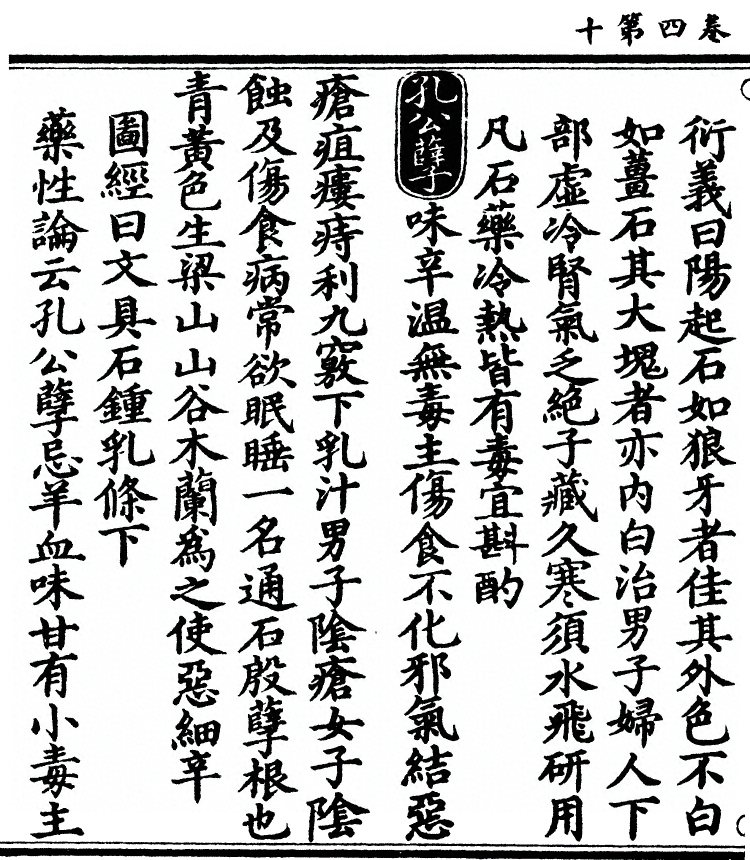 十第四卷
衍義曰陽起石如狼牙者佳其外色不白
如薑石其大塊者亦内白治男子婦人下
部虛冷腎氣乏絶子藏久寒須水飛研用
凡石藥冷熱皆有毒宜斟酌
孔公孽味辛温無毒主傷食不化邪氣結惡
瘡疽瘻痔利九竅下乳汁男子陰瘡女子陰
蝕及傷食病常欲眠睡一名通石殷孽根也
青黃色生梁山山谷木蘭為之使惡細辛
圖經曰文具石鍾乳條下
藥性論云孔公孽忌羊血味甘有小毒主